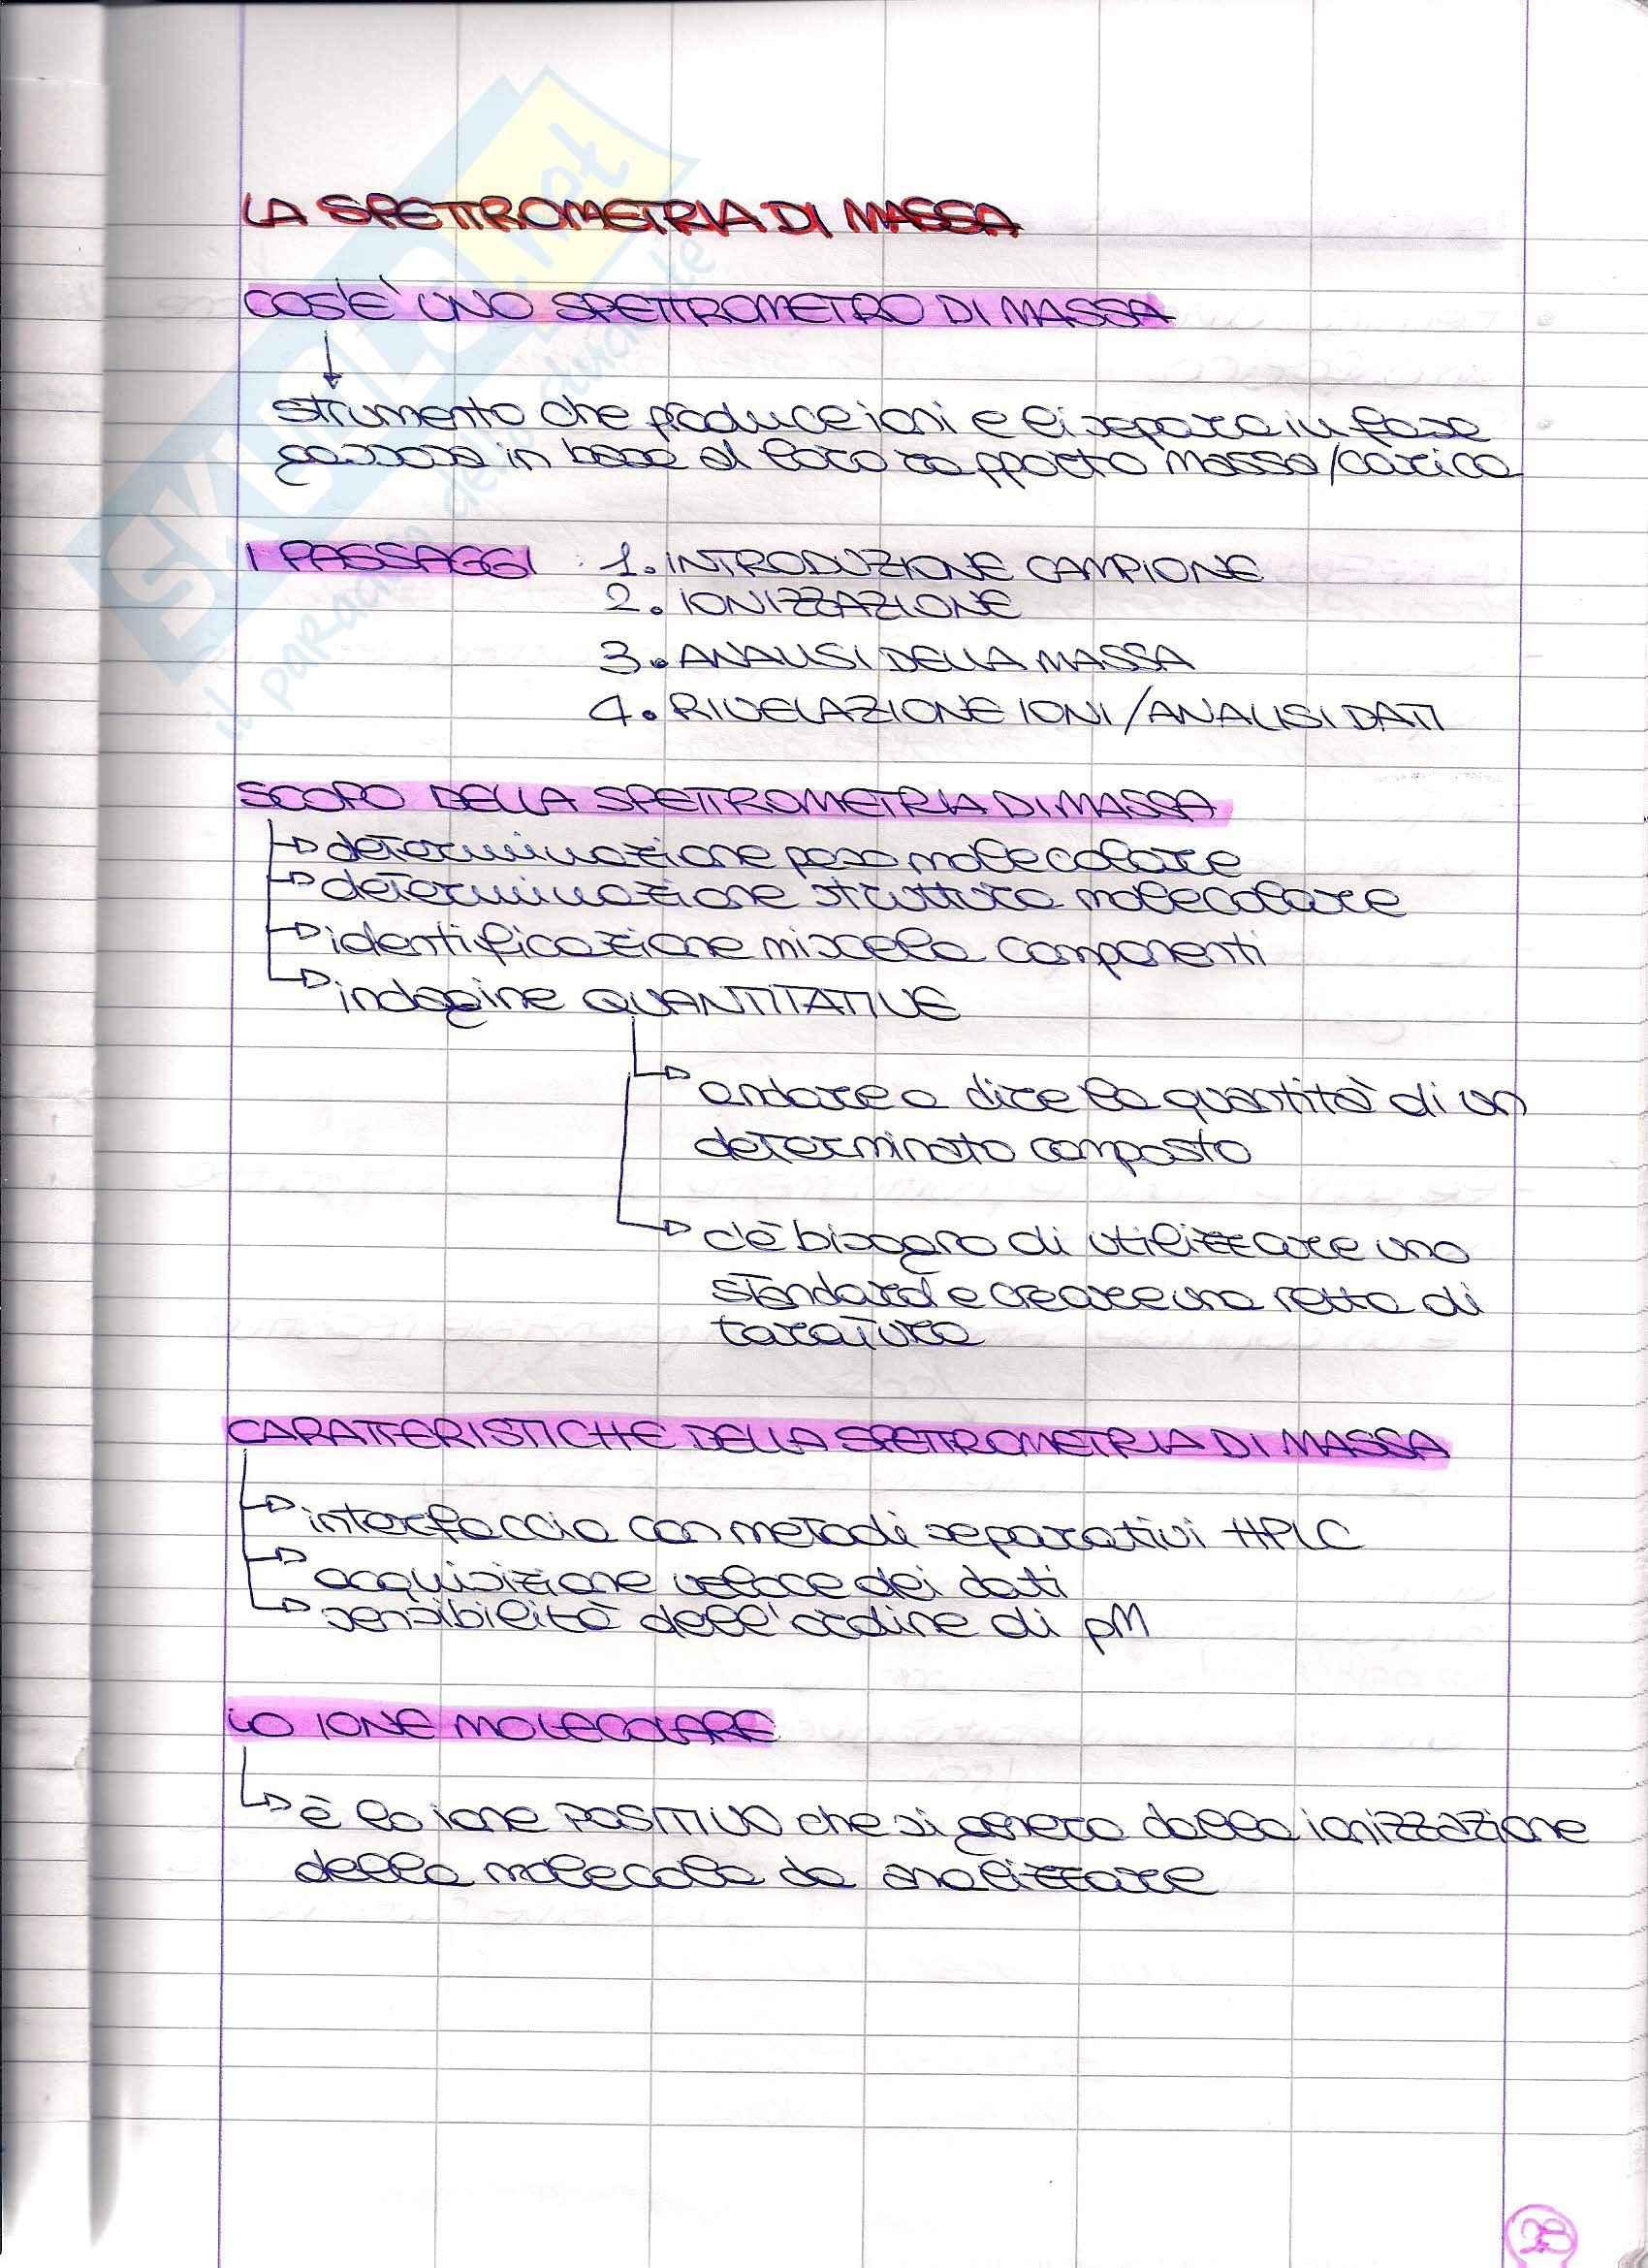 LA SPETTROMETRIA DI MASSA
COS'È UNO SPETTROMETRO DI MASSA
strumento che produce ioni e li separa in fase
gassosa in base al loro rapporto massa/carica
I PASSAGGI : 1. INTRODUZIONE CAMPIONE
2. IONIZZAZIONE
3. ANALISI DELLA MASSA
4. RIVELAZIONE IONI/ANALISI DATI
SCOPO DELLA SPETTROMETRIA DI MASSA
determinazione peso molecolare
determinazione struttura molecolare
identificazione miscela componenti
indagine QUANTITATIVE
andare a dire la quantità di un
determinato composto
c'è bisogno di utilizzare uno
standard e creare una retta di
taratura
CARATTERISTICHE DELLA SPETTROMETRIA DI MASSA
interfaccia con metodi separativi HPLC
acquisizione veloce dei dati
sensibilità dell'ordine di pM
LO IONE MOLECOLARE
è lo ione POSITIVO che si genera dalla ionizzazione
della molecola da analizzare
28
SKUOLA.net
il paradiso dello studente